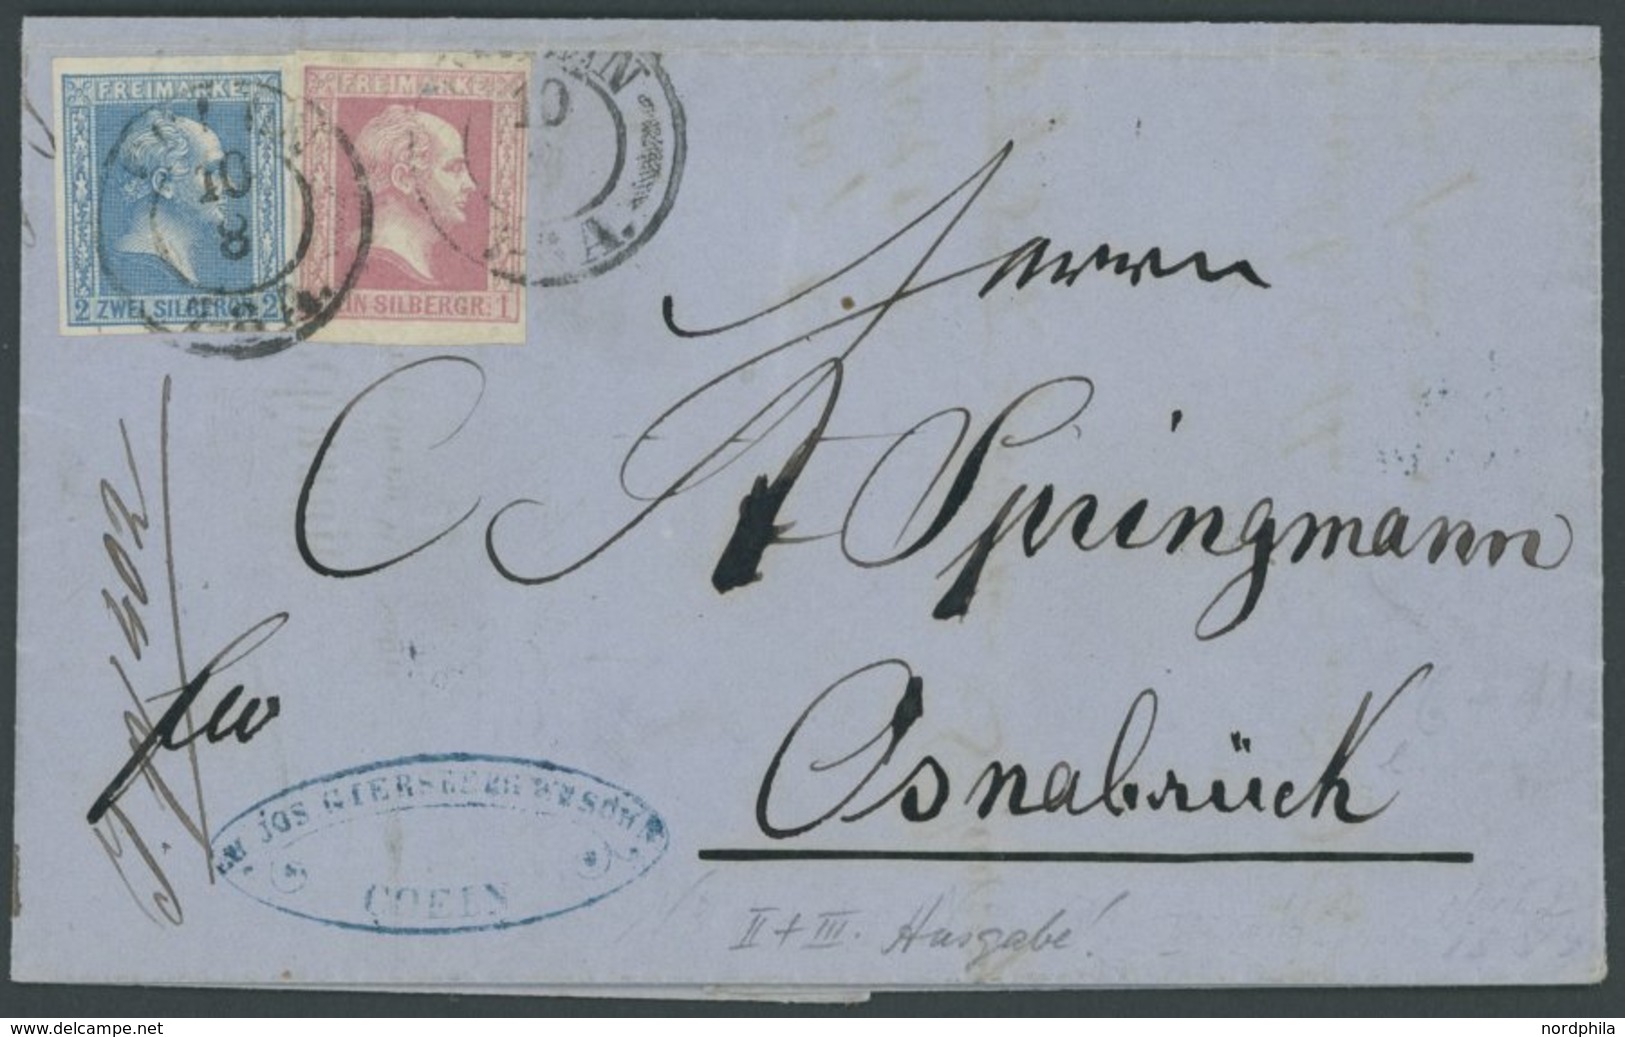 FREIMARKE
2 ZWEI SILBERGR. 2
FREIMARKE
IN SILBERGR. 1
10
8
10
A.
Herrn
C A Springmann
Osnabrück
fco
JOS GIERSBERG
COELN
II + III. Ausgabe!
delcampe.net
nordphila